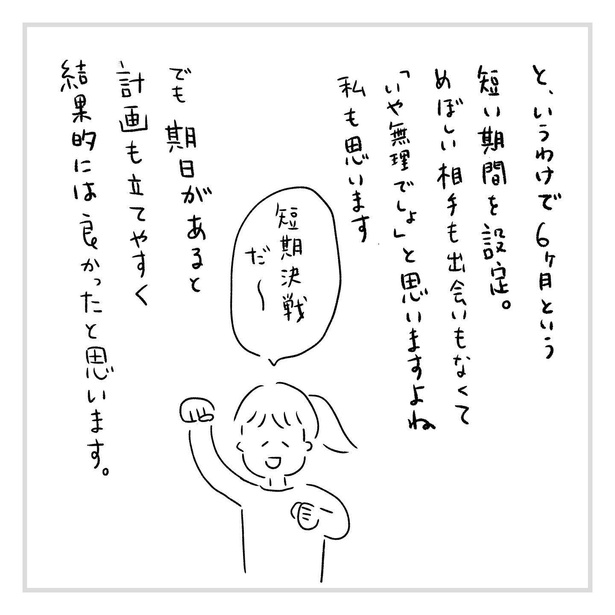 と、いうわけで6ヶ月という
短い期間を設定。
めぼしい相手も出会いもなくて
「いや無理でしょ」と思いますよね
私も思います
短期決戦
だ〜
でも期日があると
計画も立てやすく
結果的には良かったと思います。